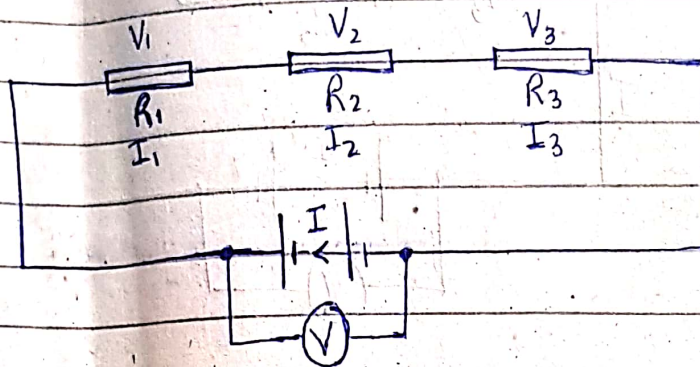 V₁ V₂ V₃
R₁ R₂ R₃
I₁ I₂ I₃
I
V